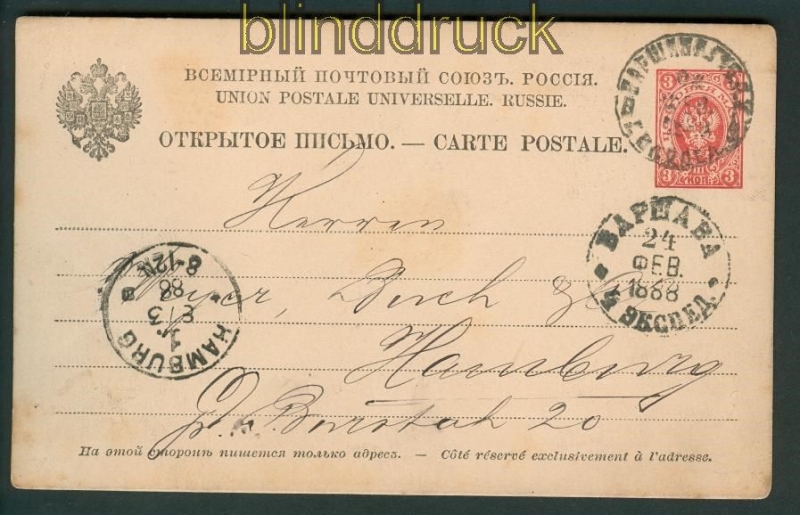 blinddruck
ВСЕМІРНЫЙ ПОЧТОВЫЙ СОЮЗЪ. РОССІЯ.
UNION POSTALE UNIVERSELLE. RUSSIE.
ОТКРЫТОЕ ПИСЬМО. — CARTE POSTALE.
3 3
3 КОП. 3
ВАРШАВА
24
ФЕВ.
1888
ЭКСПЕД.
Herren
HAMBURG
1
13
88
8-12N
& Co
Hamburg
20
На этой сторонѣ пишется только адресъ. — Côté réservé exclusivement à l'adresse.